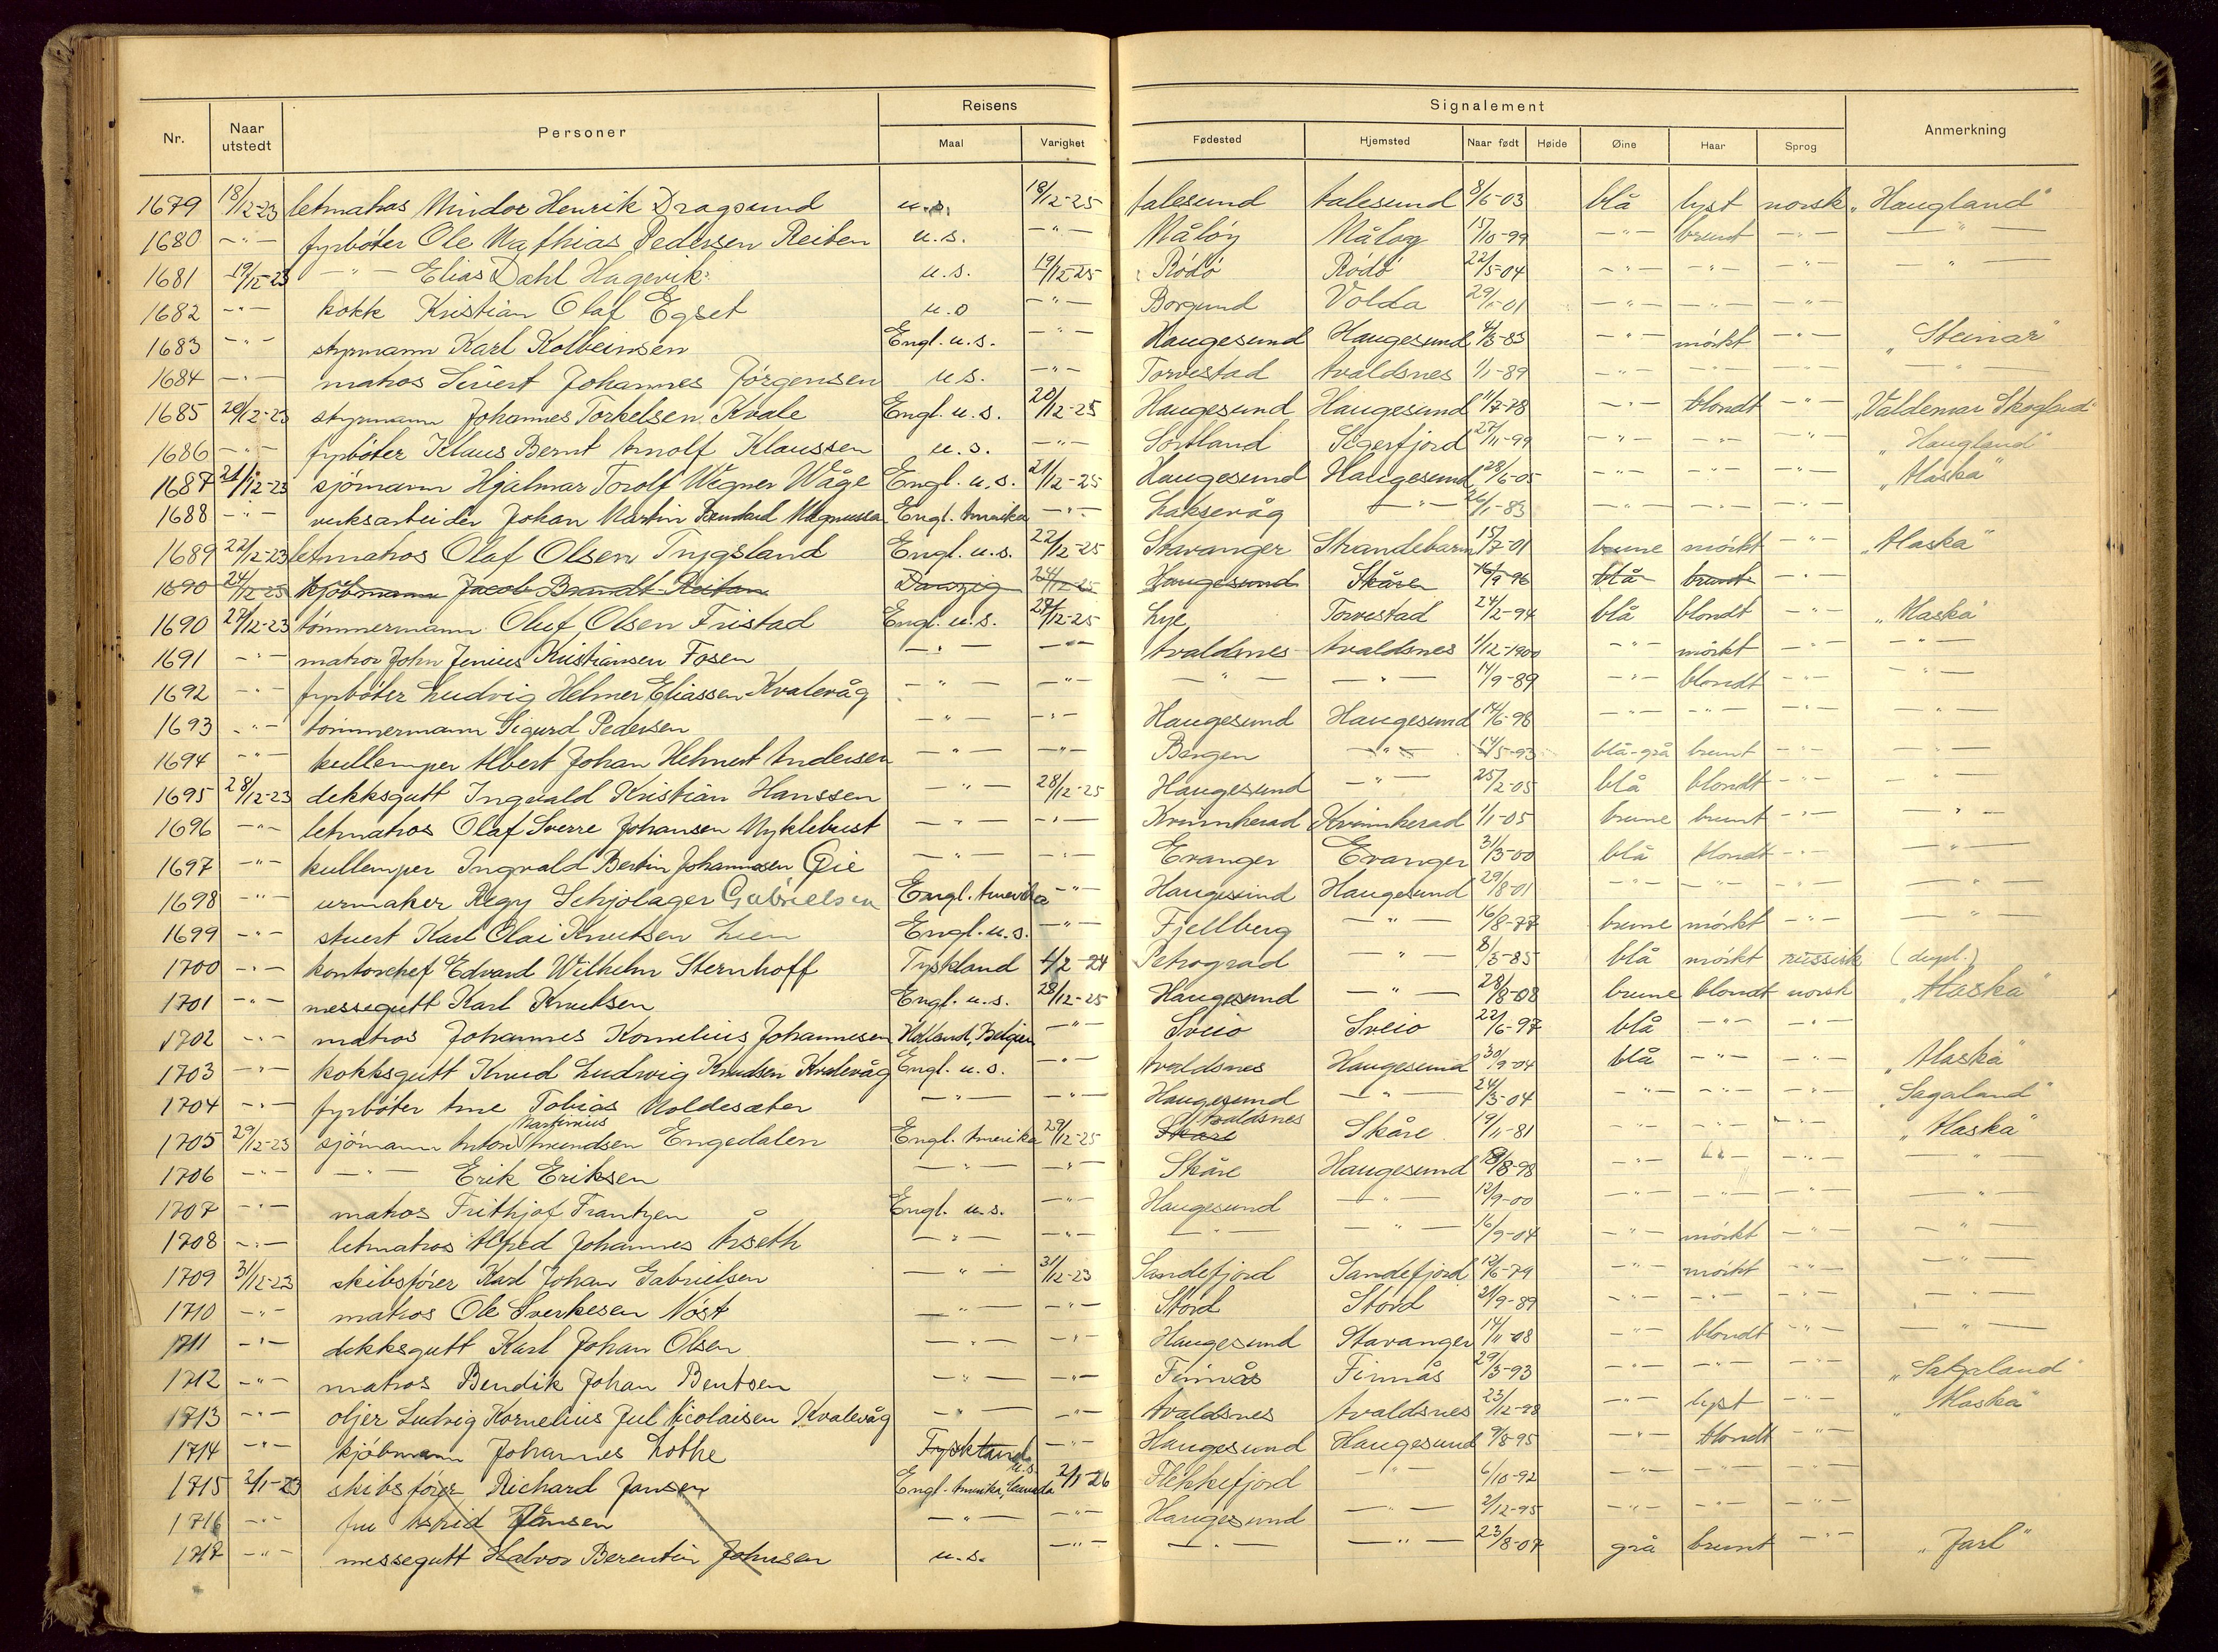 Nr. Naar utstedt Personer Reisens Maal Varighet Signalement Fødested Hjemsted Naar født Høide Øine Haar Sprog Anmerkning
1679 18/12-23 letmatros Mindor Henrik Dragsund u.s. 18/12-25 Aalesund Aalesund 8/6-03 blå lyst norsk "Haugland"
1680 -"- fyrbøter Ole Mathias Pedersen Reiten u.s. -"- Måløy Måløy 15/10-99 -"- brunt -"- -"-
1681 19/12-23 -"- Elias Dahl Hagevik u.s. 19/12-25 Rödö Rödö 22/5-04 -"- -"- -"- -"-
1682 -"- kokk Kristian Olaf Egset u.s -"- Borgund Volda -"- -"- -"-
1683 -"- styrmann Karl Kolbeinsen Engl. u.s. -"- Haugesund Haugesund 4/3-83 -"- mörkt -"- "Steinar"
1684 -"- matros Sivert Johannes Jörgensen u.s. -"- Torvestad Avaldsnes 1/1-89 -"- -"- -"- -"-
1685 20/12-23 styrmann Johannes Torkelsen Kvale Engl. u.s. 20/12-25 Haugesund Haugesund 11/7-78 -"- blondt -"- "Valdemar Skogland"
1686 -"- fyrbøter Klaus Bernt Arnolf Klaussen u.s. -"- Sortland Sigerfjord 27/11-99 -"- -"- -"- "Haugland"
1687 21/12-23 sjömann Hjalmar Torolf Wegner Wåge Engl. u.s. 21/12-25 Haugesund Haugesund 28/6-05 -"- -"- -"- "Alaska"
1688 -"- verksarbeider Johan Martin Magnussen Engl. Amerika -"- Laksevåg -"- 26/1-83 -"- -"- -"-
1689 22/12-23 letmatros Olaf Olsen Trygsland Engl. u.s. 22/12-25 Stavanger Strandebarm 15/7-01 brune mörkt -"- "Alaska"
1690 24/12-23 kjöbmann Jacob Brandt Reitan Danzig 24/12-25 Haugesund Skåre 16/9-96 blå brunt -"-
1690 27/12-23 tömmermann Oluf Olsen Fristad Engl. u.s. 27/12-25 Lye Torvestad 24/2-94 blå blondt -"- "Alaska"
1691 -"- matros John Jenius Kristiansen Fosen -"- -"- Avaldsnes Avaldsnes 1/12-1900 -"- mörkt -"- -"-
1692 -"- fyrbøter Ludvig Helmer Eliassen Kvalevåg -"- -"- -"- -"- 14/9-89 -"- blondt -"- -"-
1693 -"- tömmermann Sigurd Pedersen -"- -"- Haugesund Haugesund 14/6-98 -"- -"- -"- -"-
1694 -"- kullemper Albert Johan Helmert Andersen -"- -"- Bergen -"- 14/5-93 blå-grå brunt -"- -"-
1695 28/12-23 dekksgutt Ingvald Kristian Hanssen -"- 28/12-25 Haugesund -"- 25/2-05 blå blondt -"- -"-
1696 -"- letmatros Olaf Sverre Johansen Myklebust -"- -"- Kvinnherad Kvinnherad 1/1-05 brune brunt -"- -"-
1697 -"- kullemper Ingvald Bertin Johannesen Øie -"- -"- Evanger Evanger 31/3-00 blå blondt -"- -"-
1698 -"- urmaker Regy Schjolager Gabrielsen Engl. Amerika -"- Haugesund Haugesund 29/8-01 -"- -"- -"- -"-
1699 -"- stuert Karl Olai Knutsen Lien Engl. u.s. -"- Fjellberg -"- 16/8-77 brune mörkt -"- -"-
1700 -"- kontorchef Edvard Wilhelm Sternhoff Tyskland 4/2-24 Petrograd -"- 8/3-85 blå mörkt russisk (dupl.)
1701 -"- messegutt Karl Knutsen Engl. u.s. 28/12-25 Haugesund -"- 28/8-08 brune blondt norsk "Alaska"
1702 -"- matros Johannes Kornelius Johannesen Holland, Belgien -"- Sveio Sveio 22/6-97 blå -"- -"-
1703 -"- kokksgutt Knud Ludwig Knudsen Kvalevåg Engl. u.s. -"- Avaldsnes Haugesund 30/9-04 blå -"- -"- "Alaska"
1704 -"- fyrbøter Arne Tobias Moldesæter -"- -"- Haugesund -"- 24/3-04 -"- -"- -"- "Sagaland"
1705 29/12-23 sjömann Anton Martinius Amundsen Engedalen Engl. Amerika 29/12-25 Skåre Avaldsnes Skåre 19/11-81 -"- -"- -"- "Alaska"
1706 -"- -"- Erik Eriksen -"- -"- Skåre Haugesund 18/8-98 -"- -"- -"- -"-
1707 -"- matros Frithjof Frantzen Engl. u.s. -"- Haugesund -"- 12/9-00 -"- -"- -"- -"-
1708 -"- letmatros Alfred Johannes Årseth -"- -"- -"- -"- 16/9-04 -"- mörkt -"- -"-
1709 31/12-23 skibsförer Karl Johan Gabrielsen -"- 31/12-23 Sandefjord Sandefjord 12/6-79 -"- mörkt -"- -"-
1710 -"- matros Ole Sverkesen Nöst -"- -"- Stord Stord 21/9-89 -"- -"- -"- -"-
1711 -"- dekksgutt Karl Johan Olsen -"- -"- Haugesund Stavanger 14/11-08 -"- blondt -"- -"-
1712 -"- matros Bendik Johan Bentsen -"- -"- Finnås Finnås 29/3-93 -"- -"- -"- "Sagaland"
1713 -"- oljer Ludvig Kornelius Jul Nicolaisen Kvalevåg -"- -"- Avaldsnes Avaldsnes 23/12-98 -"- lyst -"- "Alaska"
1714 -"- kjöbmann Johannes Lothe Tyskland u.s. -"- Haugesund Haugesund 9/8-95 -"- blondt -"-
1715 2/1-23 skibsförer Richard Jansen Engl. Amerika, Canada 2/1-26 Flekkefjord -"- 6/10-92 -"- -"- -"-
1716 -"- fru Astrid Jansen -"- -"- Haugesund -"- 2/12-95 -"- -"- -"-
1717 -"- messegutt Halvor Berentin Johnsen u.s. -"- -"- -"- 23/8-07 grå brunt -"- "Jarl"